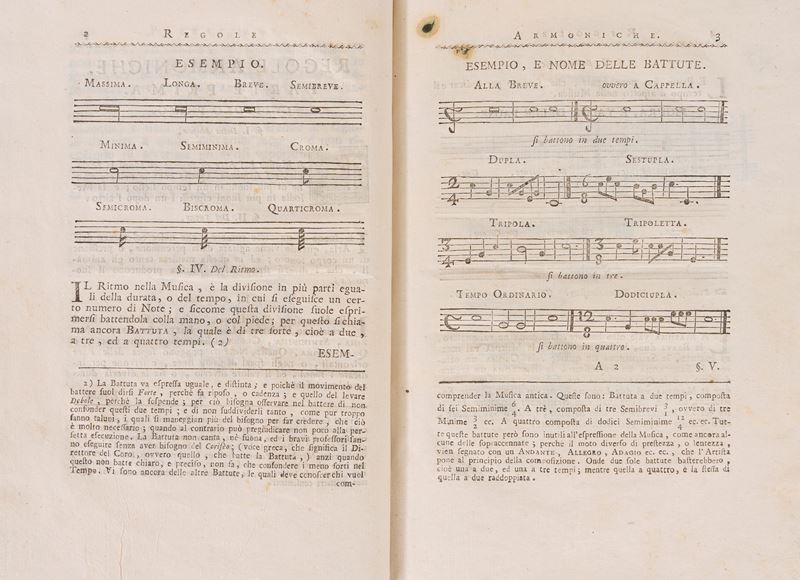 2 REGOLE
ESEMPIO.
MASSIMA. LONGA. BREVE. SEMIBREVE.
MINIMA. SEMIMINIMA. CROMA.
SEMICROMA. BISCROMA. QUARTICROMA.
§. IV. Del Ritmo.
IL Ritmo nella Musica, è la divisione in più parti egua-
li della durata, o del tempo, in cui si eseguisce un cer-
to numero di Note; e siccome questa divisione suole espri-
mersi battendola colla mano, o col piede; per questo si chia-
ma ancora BATTUTA, la quale è di tre sorte, cioè a due,
a tre, ed a quattro tempi. (2)
ESEM-
2) La Battuta va espressa uguale, e distinta; e poichè il movimento del
battere suol dirsi Forte, perchè fa riposo, o cadenza; e quello del levare
Debole, perchè la sospende; per ciò bisogna osservare nel battere di non
confonder questi due tempi; e di non suddividerli tanto, come pur troppo
fanno taluni, i quali si maneggian più del bisogno per far credere, che ciò
è molto necessario; quando al contrario può pregiudicare non poco alla per-
fetta esecuzione. La Battuta non canta, nè suona, ed i bravi professori san-
no eseguire senza aver bisogno del Corifeo; (voce greca, che significa il Di-
rettore del Coro, ovvero quello, che batte la Battuta,) anzi quando
questo non batte chiaro, e preciso, non fa, che confondere i meno forti nel
Tempo. Vi sono ancora delle altre Battute, le quali deve conoscer chi vuol
com-
ARMONICHE. 3
ESEMPIO, E NOME DELLE BATTUTE.
ALLA BREVE. ovvero A CAPPELLA.
si battono in due tempi.
DUPLA. SESTUPLA.
2 4 6 8
TRIPOLA. TRIPOLETTA.
3 4 3 8
si battono in tre.
TEMPO ORDINARIO. DODICIUPLA.
12 8
si battono in quattro.
A 2 §. V.
comprender la Musica antica. Queste sono: Battuta a due tempi, composta
di sei Semiminime 6/4. A trè, composta di tre Semibrevi 3/1, ovvero di tre
Minime 3/2 ec. A quattro composta di dodici Semiminime 12/4 ec. ec. Tut-
te queste battute però sono inutili all'espressione della Musica, come ancora al-
cune delle sopraccennate; perchè il moto diverso di prestezza, o lentezza,
vien segnato con un ANDANTE, ALLEGRO, ADAGIO ec. ec., che l'Artista
pone al principio della composizione. Onde due sole battute basterebbero,
cioè una a due, ed una a tre tempi; mentre quella a quattro, è la stessa di
quella a due raddoppiata.